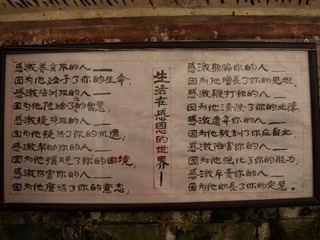 生活在感恩的世界—
感激养育你的人——
因为他给予了你的生命.
感激培训你的人——
因为他陪给了你的智慧.
感激提拔你的人——
因为他提供了你的机遇.
感激帮助你的人——
因为他摆脱了你的困境.
感激伤害你的人——
因为他磨练了你的意志.
感激欺骗你的人——
因为他增长了你的见识.
感激鞭打你的人——
因为他清除了你的业障.
感激遗弃你的人——
因为他教 了你应自立
感激 害你的人——
因为他强化了你的能力.
感激斥责你的人——
因为他助长了你的定慧.